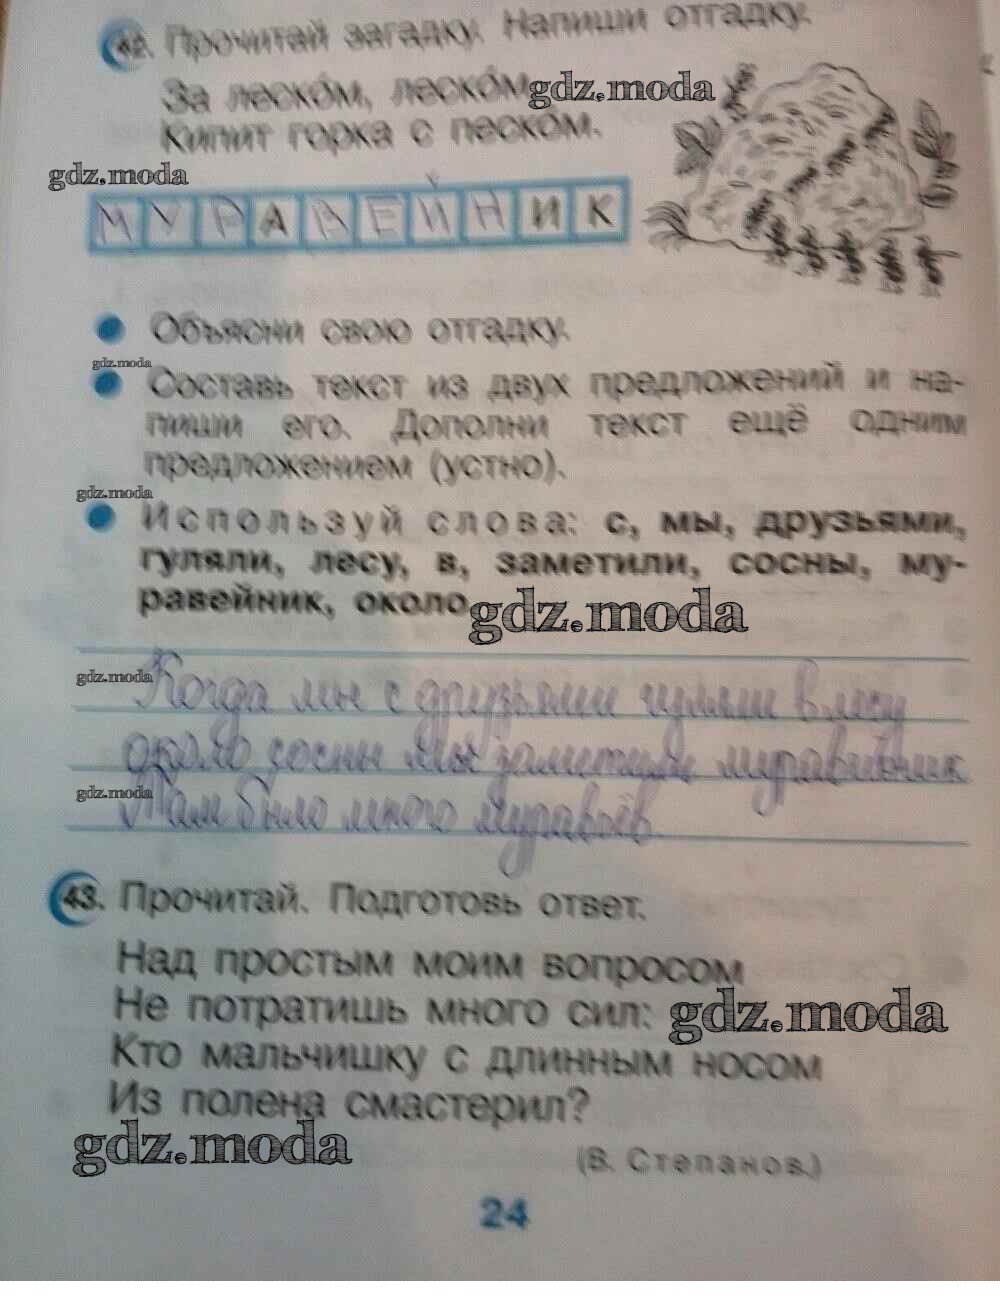 42. Прочитай загадку. Напиши отгадку.
За леско́м, леско́м gdz.moda
Кипит горка с песком.
gdz.moda
МУРАВЕЙНИК
Объясни свою отгадку.
gdz.moda
Составь текст из двух предложений и на-
пиши его. Дополни текст ещё одним
предложением (устно).
gdz.moda
Используй слова: с, мы, друзьями,
гуляли, лесу, в, заметили, сосны, му-
равейник, около gdz.moda
gdz.moda Когда мы с друзьями гуляли в лесу
около сосны мы заметили муравейник
gdz.moda Там было много муравьёв.
43. Прочитай. Подготовь ответ.
Над простым моим вопросом
Не потратишь много сил: gdz.moda
Кто мальчишку с длинным носом
Из полена смастерил?
gdz.moda
(В. Степанов.)
24